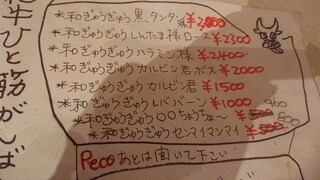 *和ぎゅうぎゅう黒タンタン ¥3,000
*和ぎゅうぎゅうしんたま様ロース ¥2300
*和ぎゅうぎゅうハラミン様 ¥2400
*和ぎゅうぎゅうカルビン君ボス ¥2000
*和ぎゅうぎゅうカルビン君 ¥1500
*和ぎゅうぎゅうレババーン ¥1000
*和ぎゅうぎゅう〇〇ちょうちょ〜 ¥500
*和ぎゅうぎゅうセンマイマンマイ ¥500
Pecoあとは聞いて下さい
牛ひと筋がんば